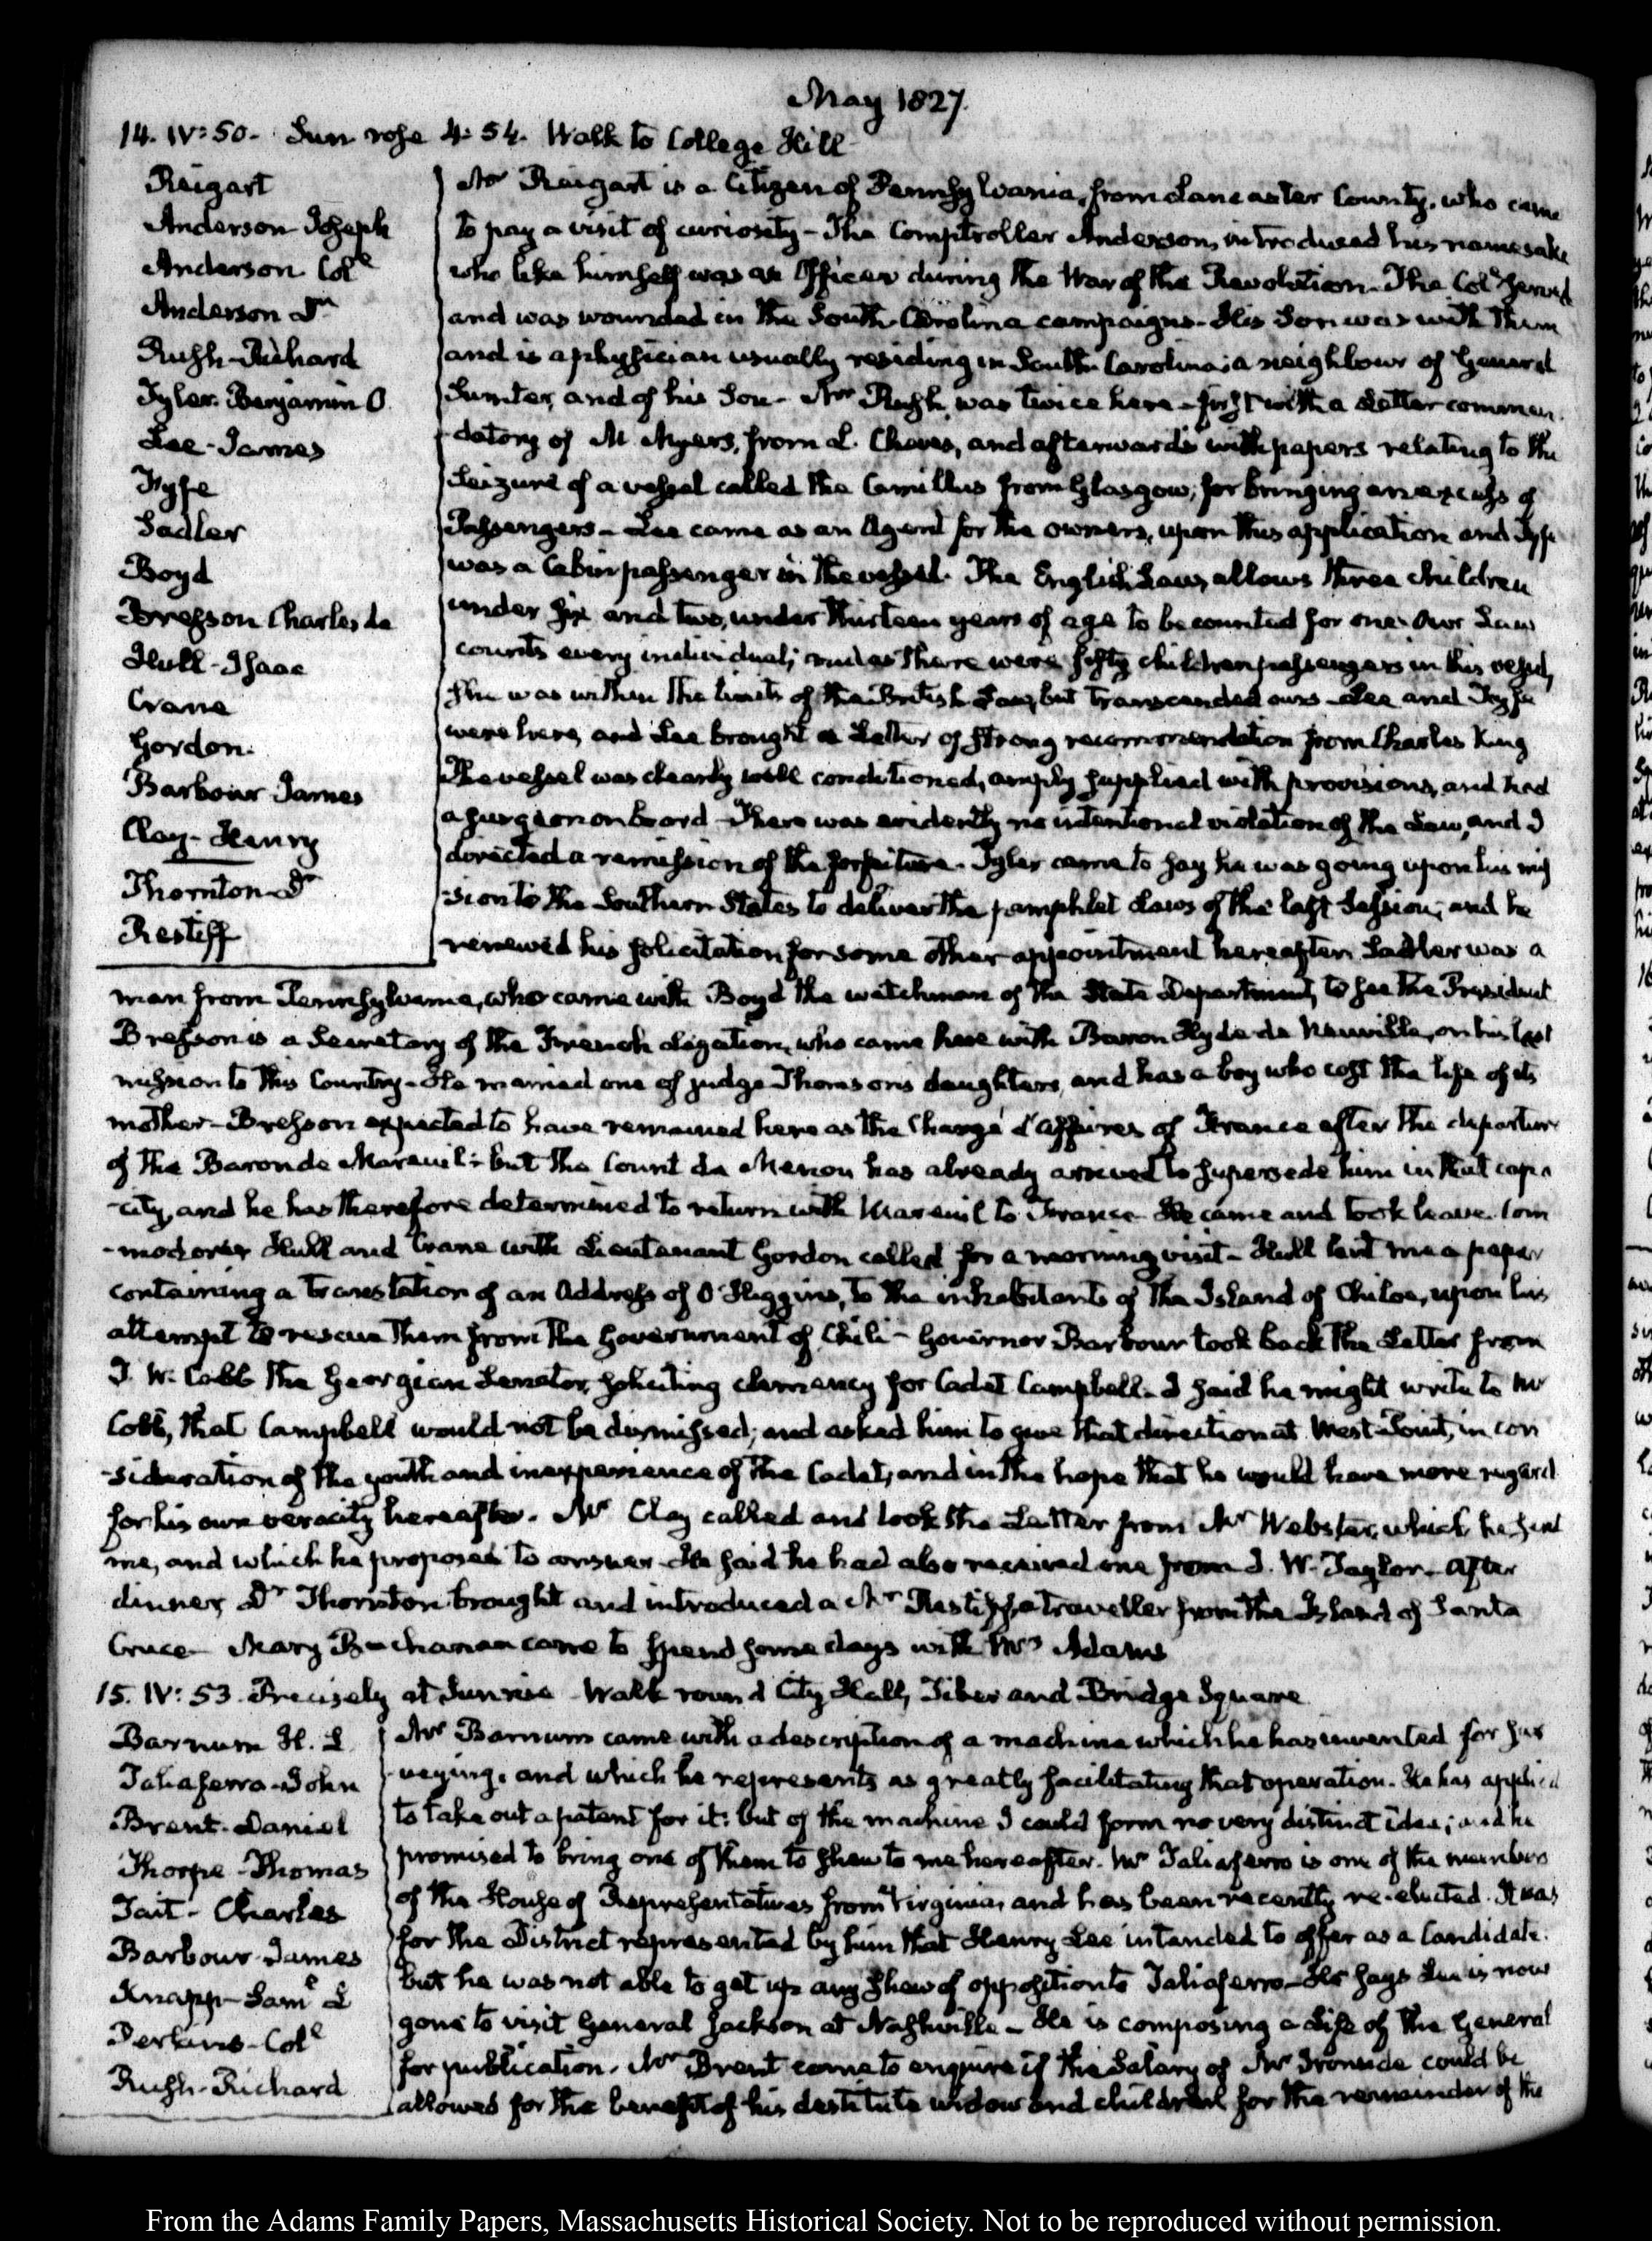 May 1827.
14. IV:50. Sun rose 4:54. Walk to College Hill
Reigart
Anderson Joseph
Anderson Coll
Anderson Dr
Rush-Richard
Tyler. Benjamin O.
Lee-James
Fyfe
Sadler
Boyd
Bresson Charles de
Hull-Isaac
Crane
Gordon.
Barbour James
Clay-Henry
Thornton-Dr
Restiff
Mr Reigart is a Citizen of Pennsylvania, from Lancaster County, who came
to pay a visit of curiosity - The Comptroller Anderson, introduced his namesake
who like himself was an Officer during the War of the Revolution. The Coll served
and was wounded in the South-Carolina campaigns. His Son was with them
and is a physician usually residing in South Carolina; a neighbour of General
Sumter, and of his Son - Mr Rush was twice here - first with a Letter commen-
-datory of M Myers, from L. Chaves, and afterwards with papers relating to the
Seizure of a vessel called the Camillus from Glasgow, for bringing an excess of
Passengers - Lee came as an Agent for the owners, upon this application and Fyfe
was a Cabin passenger in the vessel. The English Law, allows three children
under six and two, under thirteen years of age to be counted for one. Our Law
counts every individual; and as there were fifty children passengers in this vessel,
she was within the limits of the British Law, but transcended ours - Lee and Fyfe
were here, and Lee brought a Letter of strong recommendation from Charles King
The vessel was clearly well conditioned, amply supplied with provisions, and had
a surgeon on board - There was evidently no intentional violation of the Law, and I
directed a remission of the forfeiture. Tyler came to say he was going upon his mis
-sion to the Southern States to deliver the pamphlet Laws of the last Session; and he
renewed his solicitation for some other appointment hereafter. Sadler was a
man from Pennsylvania, who came with Boyd the watchman of the State Department, to see the President
Bresson is a Secretary of the French Legation, who came here with Baron Hyde de Neuville, on his last
mission to this Country - He married one of judge Thomson's daughters, and has a boy who cost the life of its
mother - Bresson expected to have remained here as the Chargé d'Affaires of France after the departure
of the Baron de Mareuil; but the Count de Menou has already arrived to supersede him in that capa
-city, and he has therefore determined to return with Mareuil to France. He came and took leave. Com
-modores Hull and Crane with Lieutenant Gordon called for a morning visit - Hull lent me a paper
containing a translation of an Address of O'Higgins, to the inhabitants of the Island of Chiloe, upon his
attempt to rescue them from the Government of Chili - Governor Barbour took back the Letter from
T. W. Cobb the Georgian Senator, soliciting clemency for Cadet Campbell. I said he might write to Mr
Cobb, that Campbell would not be dismissed; and asked him to give that direction at West-Point, in con
-sideration of the youth and inexperience of the Cadet, and in the hope that he would have more regard
for his own veracity hereafter. Mr Clay called and took the Letter from Mr Webster, which he sent
me, and which he proposes to answer. He said he had also received one from J. W. Taylor - After
dinner, Dr Thornton brought and introduced a Mr Restiff, a traveller from the Island of Santa
Cruce - Mary Buchanan came to spend some days with Mrs Adams
15. IV:53. Precisely at Sunrise - Walk round City Hall, Tiber and Bridge Square
Barnum H. L
Taliaferro-John
Brent-Daniel
Thorpe-Thomas
Tait-Charles
Barbour-James
Knapp-Saml L
Perkins-Coll
Rush-Richard
Mr Barnum came with a description of a machine which he has invented for sur
-veying, and which he represents as greatly facilitating that operation. He has applied
to take out a patent for it: but of the machine I could form no very distinct idea; and he
promised to bring one of them to shew to me hereafter. Mr Taliaferro is one of the members
of the House of Representatives from Virginia, and has been recently re-elected. It was
for the District represented by him that Henry Lee intended to offer as a Candidate.
but he was not able to get up any shew of opposition to Taliaferro - He says Lee is now
gone to visit General Jackson at Nashville - He is composing a Life of the General
for publication. Mr Brent came to enquire if the Salary of Mr Ironside could be
allowed for the benefit of his destitute widow and children for the remainder of the
From the Adams Family Papers, Massachusetts Historical Society. Not to be reproduced without permission.